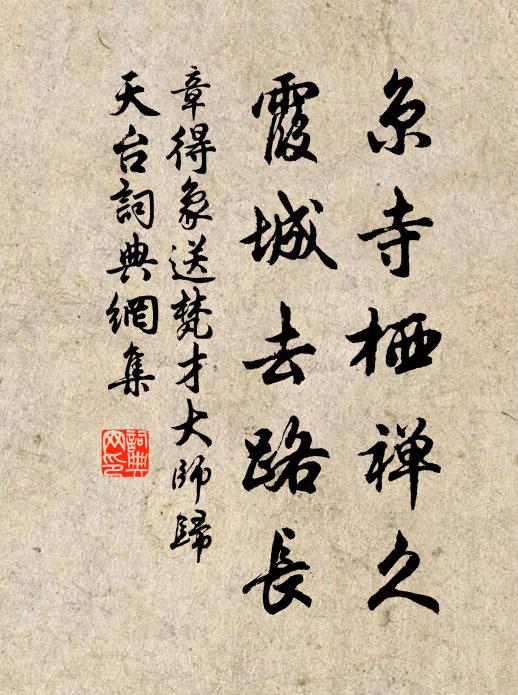 京寺栖禅久
霞城去路長
章得象送梵才大師歸
天台詞典網集
詞典網印